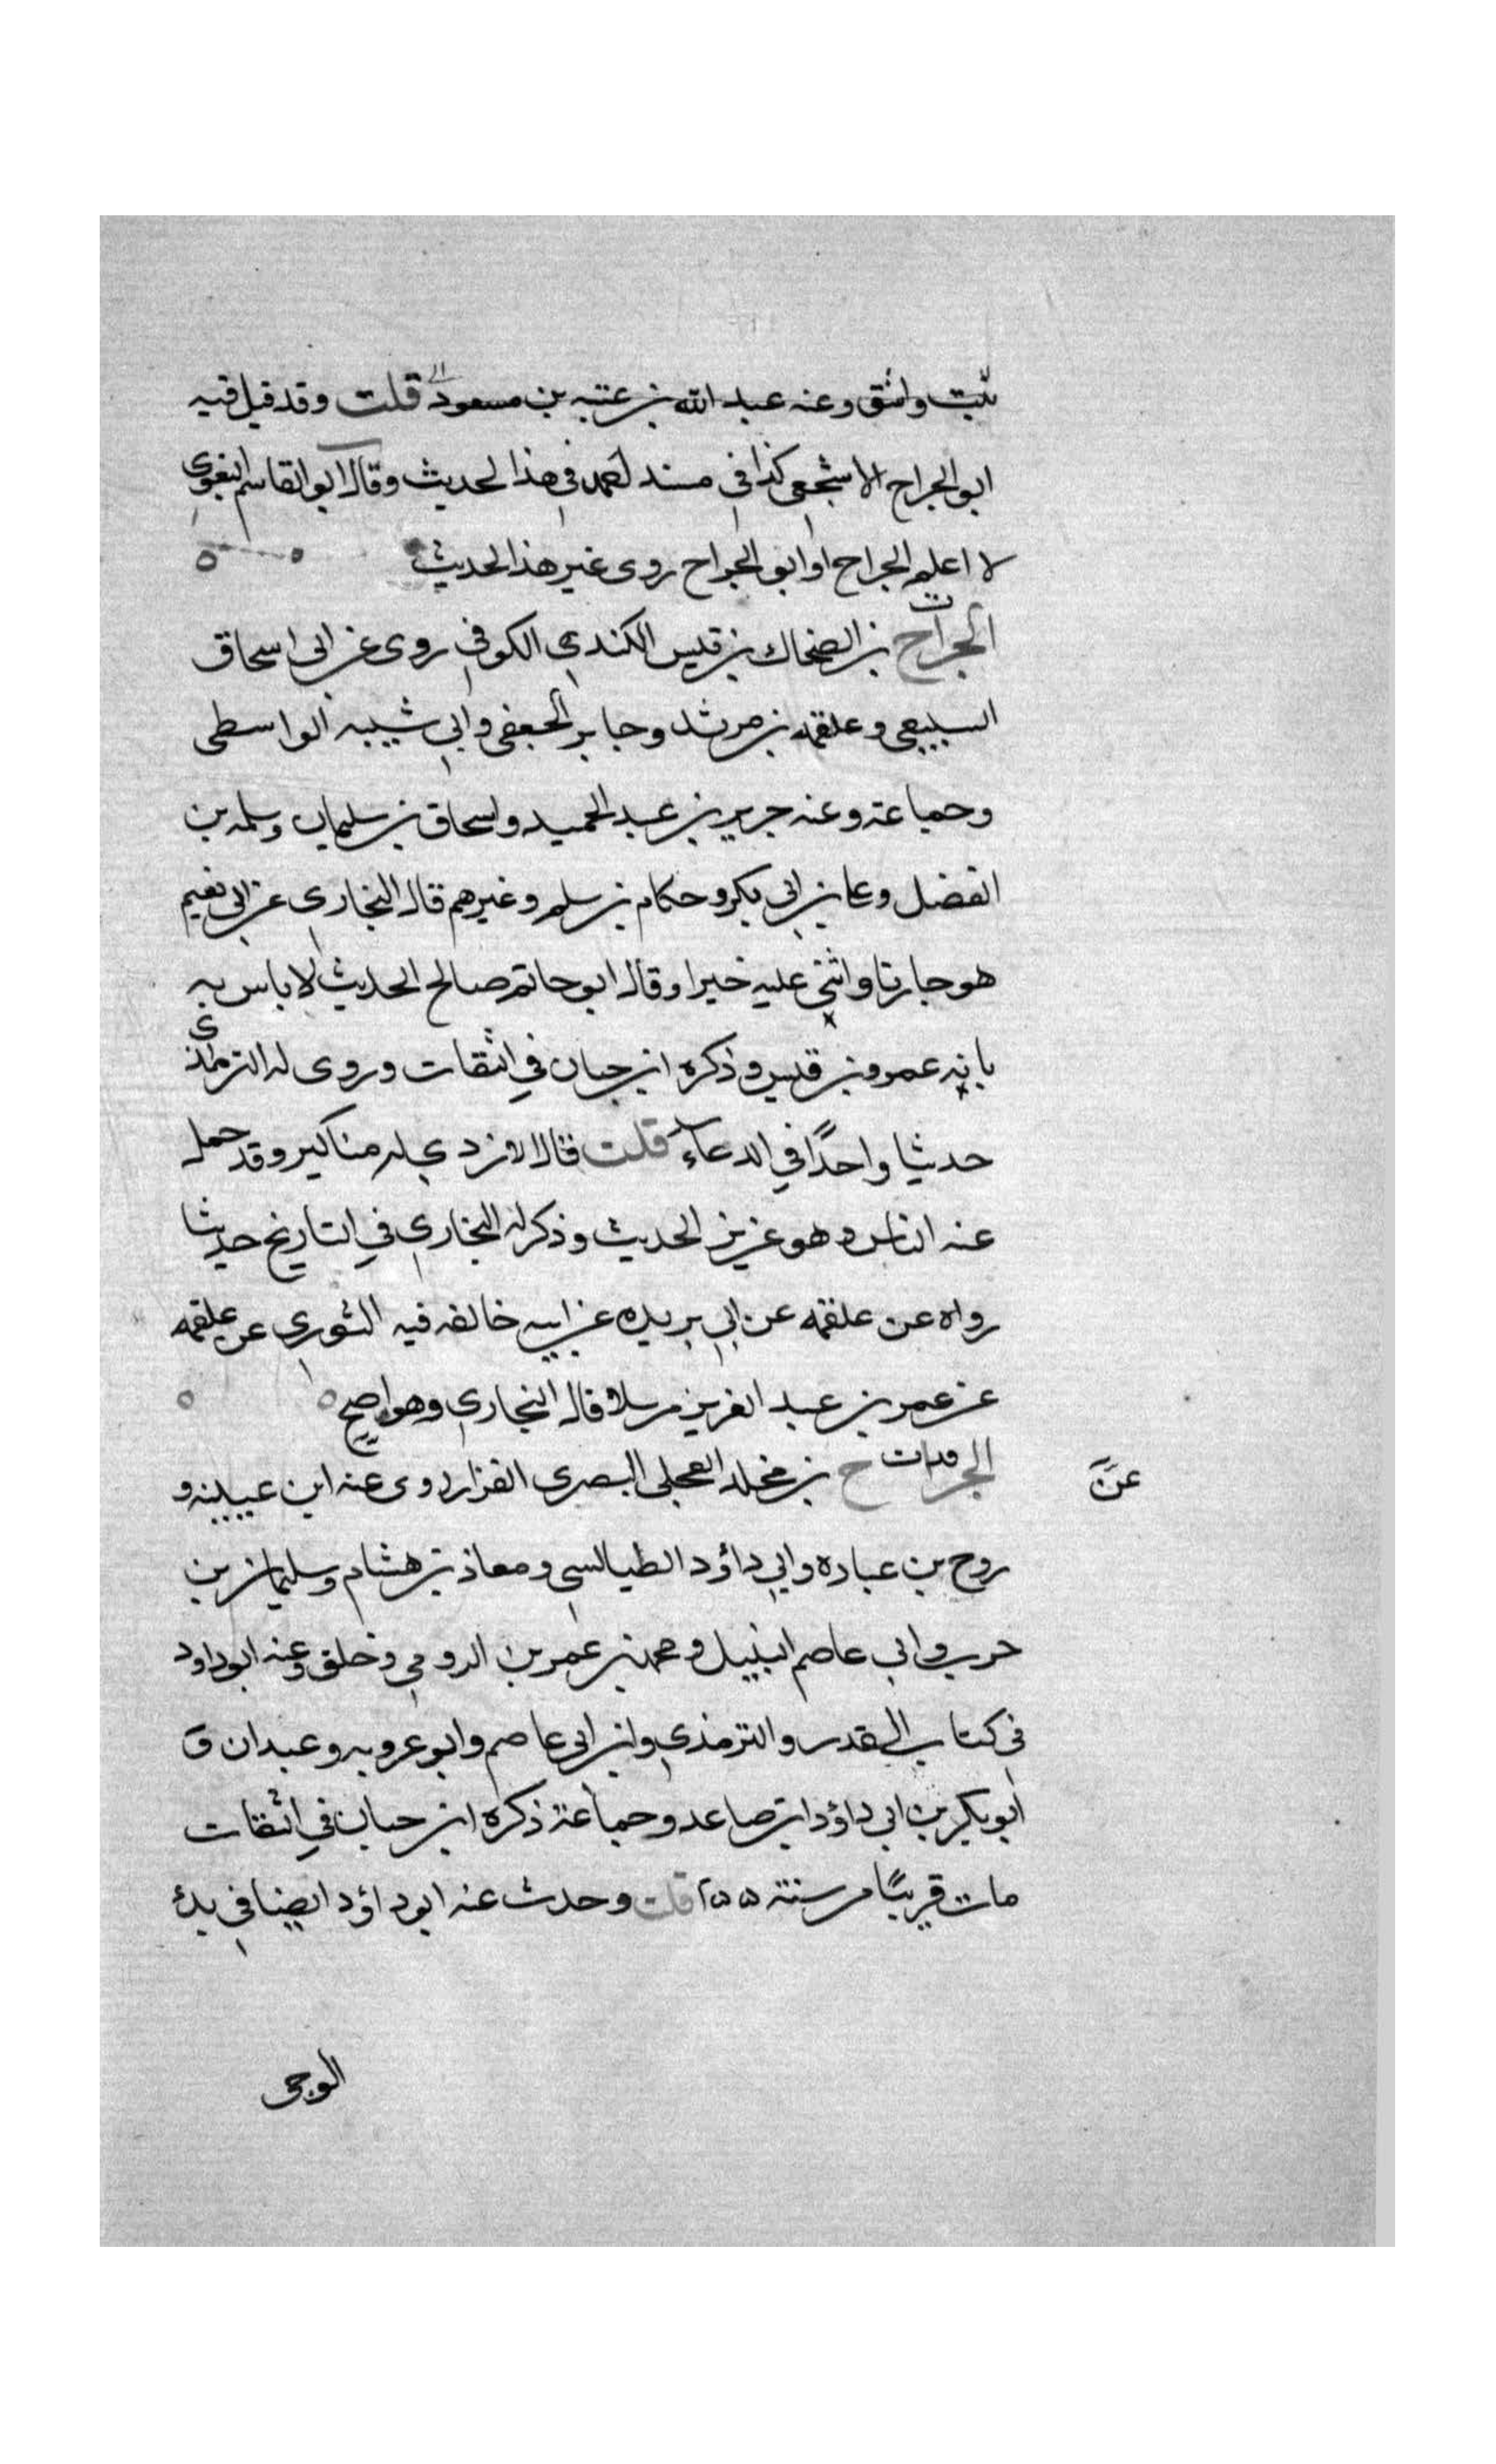 بنت واشق وعنه عبد الله بن عتبه بن مسعود قلت وقد قيل فيه
ابو الجراح الاشجعي كذا في مسند احمد في هذا الحديث وقال ابو القاسم البغوي
لا اعلم الجراح او ابو الجراح روى غير هذا الحديث
ت
الجراح بن الضحاك بن قيس الكندي الكوفي روى عن ابي اسحاق
السبيعي وعلقمه بن مرثد وجابر الجعفي وابي شيبه الواسطى
وجماعة وعنه جرير بن عبد الحميد واسحاق بن سليمان وسلمه بن
الفضل وعلي بن ابي بكر وحكام بن سلم وغيرهم قال البخاري عن ابي نعيم
هو جارنا واثنى عليه خيرا وقال ابو حاتم صالح الحديث لا باس به
بابه عمرو بن قيس وذكره ابن حبان في الثقات وروى له الترمذي
حديثا واحدًا في الدعاء قلت قال الازدي له مناكير وقد حمل
عنه الناس وهو عزيز الحديث وذكر له البخاري في التاريخ حديثا
رواه عن علقمه عن ابي بريده عن ابيه خالفه فيه الثوري عن علقمه
عن عمر بن عبد العزيز مرسلا قال البخاري وهو اصح
عن
الجراح بن مخلد العجلي البصري القزاز روى عنه ابن عيينه و
روح بن عباده وابي داؤد الطيالسي ومعاذ بن هشام وسليمان بن
حرب وابي عاصم النبيل ومحمد بن عمر بن الرومي وخلق وعنه ابو داود
في كتاب القدر والترمذي وابن ابي عاصم وابو عروبه وعبدان و
ابو بكر بن ابي داؤد ابن صاعد وجماعة ذكره ابن حبان في الثقات
مات قريبًا من سنة ٢٥٥ قلت وحدث عنه ابو داؤد ايضا في بدء
الوحى